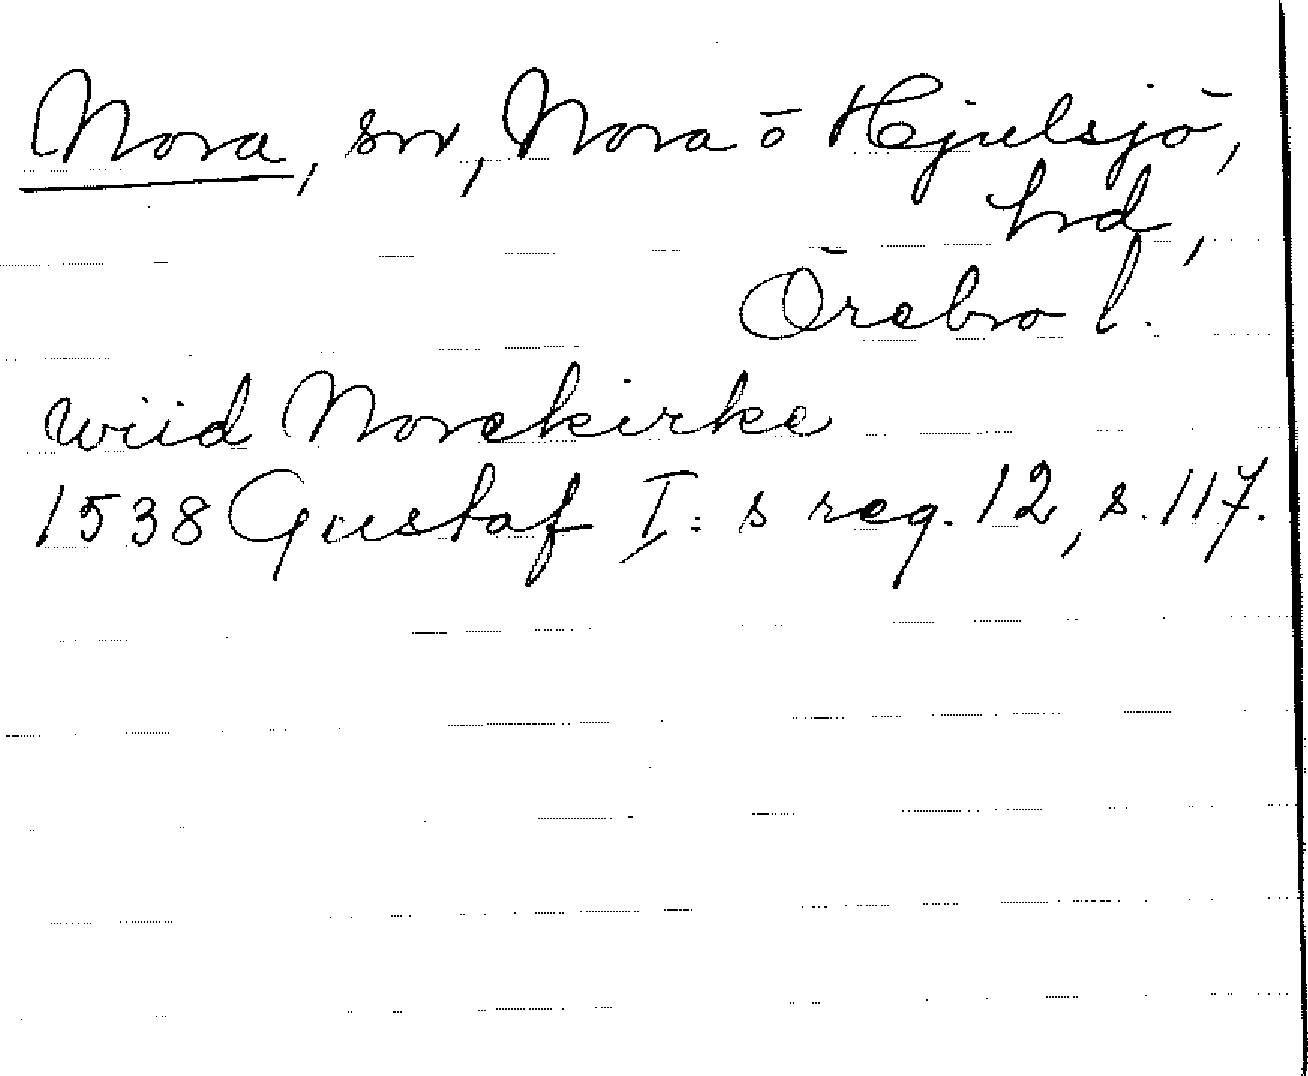 Nora, sn, Nora o Hjulsjö,
hrd,
Örebro l.
wiid Norakirke
1538 Gustaf I:s reg. 12, s. 117.